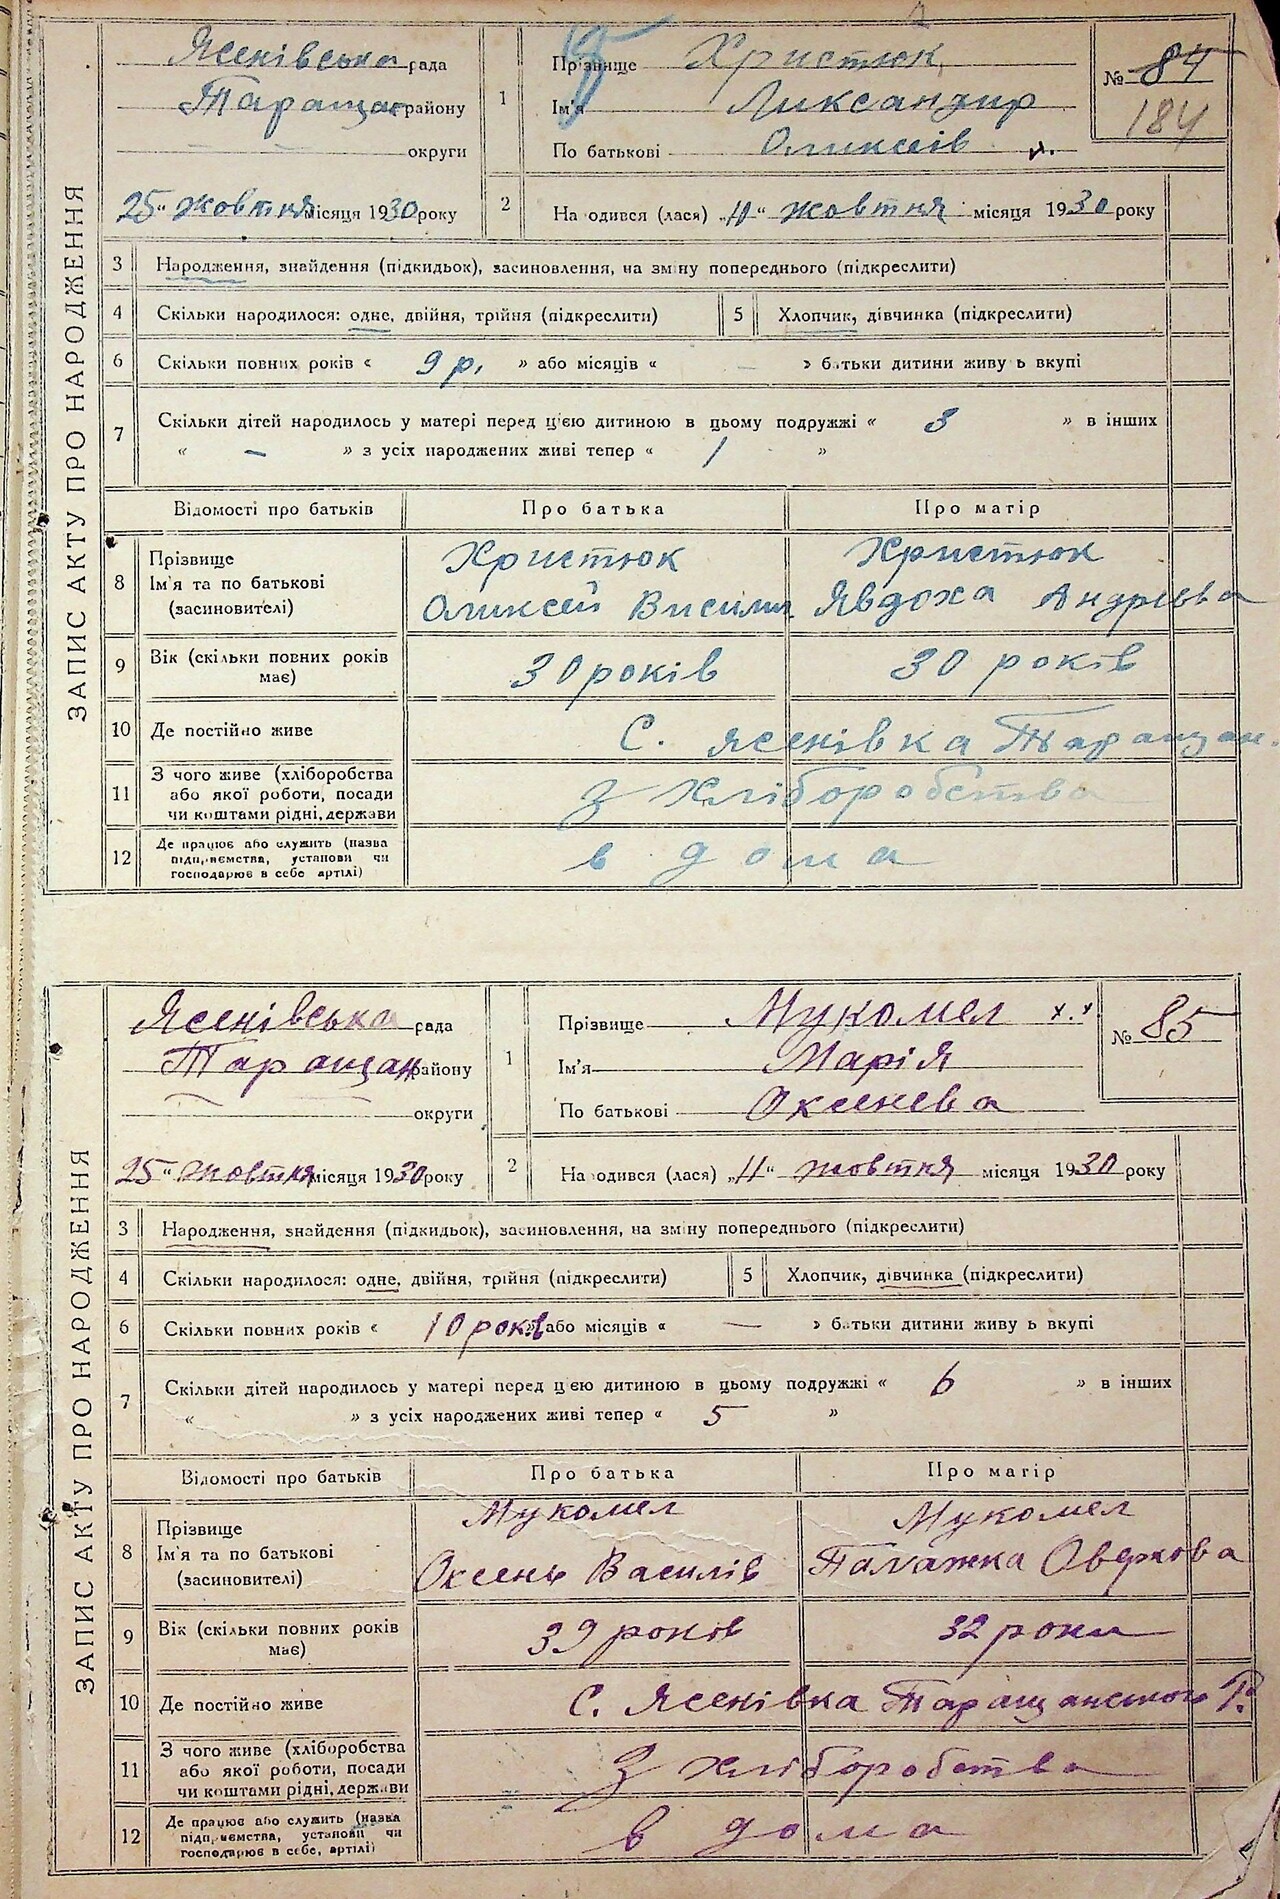 ЗАПИС АКТУ ПРО НАРОДЖЕННЯ
Ясенівська рада
Таращан району
округи
25 " жовтня місяця 1930 року
1 Прізвище Христюк
Ім'я Лиександир
По батькові Оликсеів
№ 84
184
2 На одився (лася) „11" жовтня місяця 1930 року
3 Народження, знайдення (підкидьок), засиновлення, на зміну попереднього (підкреслити)
4 Скільки народилося: одне, двійня, трійня (підкреслити) 5 Хлопчик, дівчинка (підкреслити)
6 Скільки повних років « 9 р. » або місяців « — » батьки дитини живу ь вкупі
7 Скільки дітей народилось у матері перед ц'єю дитиною в цьому подружжі « 3 » в інших
« — » з усіх народжених живі тепер « 1 »
Відомості про батьків Про батька Про матір
8 Прізвище Христюк Христюк
Ім'я та по батькові
(засиновителі) Оликсей Висили. Явдоха Андрієва
9 Вік (скільки повних років має) 30 років 30 років
10 Де постійно живе С. Ясенівка Таращан.
11 З чого живе (хліборобства
або якої роботи, посади З Хліборобства
чи коштами рідні, держави
12 Де працює або служить (назва
підприємства, установи чи в дома
господарює в себе артілі)
ЗАПИС АКТУ ПРО НАРОДЖЕННЯ
Ясенівська рада
Таращан району
округи
25 " жовтня місяця 1930 року
1 Прізвище Мукомел х.х
Ім'я Марія
По батькові Оксенева
№ 85
2 На одився (лася) „11" жовтня місяця 1930 року
3 Народження, знайдення (підкидьок), засиновлення, на зміну попереднього (підкреслити)
4 Скільки народилося: одне, двійня, трійня (підкреслити) 5 Хлопчик, дівчинка (підкреслити)
6 Скільки повних років « 10 років » або місяців « — » батьки дитини живу ь вкупі
7 Скільки дітей народилось у матері перед ц єю дитиною в цьому подружжі « 6 » в інших
« » з усіх народжених живі тепер « 5 »
Відомості про батьків Про батька Про матір
8 Прізвище Мукомел Мукомел
Ім'я та по батькові
(засиновителі) Оксень Василів Палажка Оверкова
9 Вік (скільки повних років має) 39 років 32 роки
10 Де постійно живе С. Ясенівка Таращанського Р.
11 З чого живе (хліборобства
або якої роботи, посади З Хліборобства
чи коштами рідні, держави
12 Де працює або служить (назва
підприємства, установи чи в дома
господарює в себе, артілі)